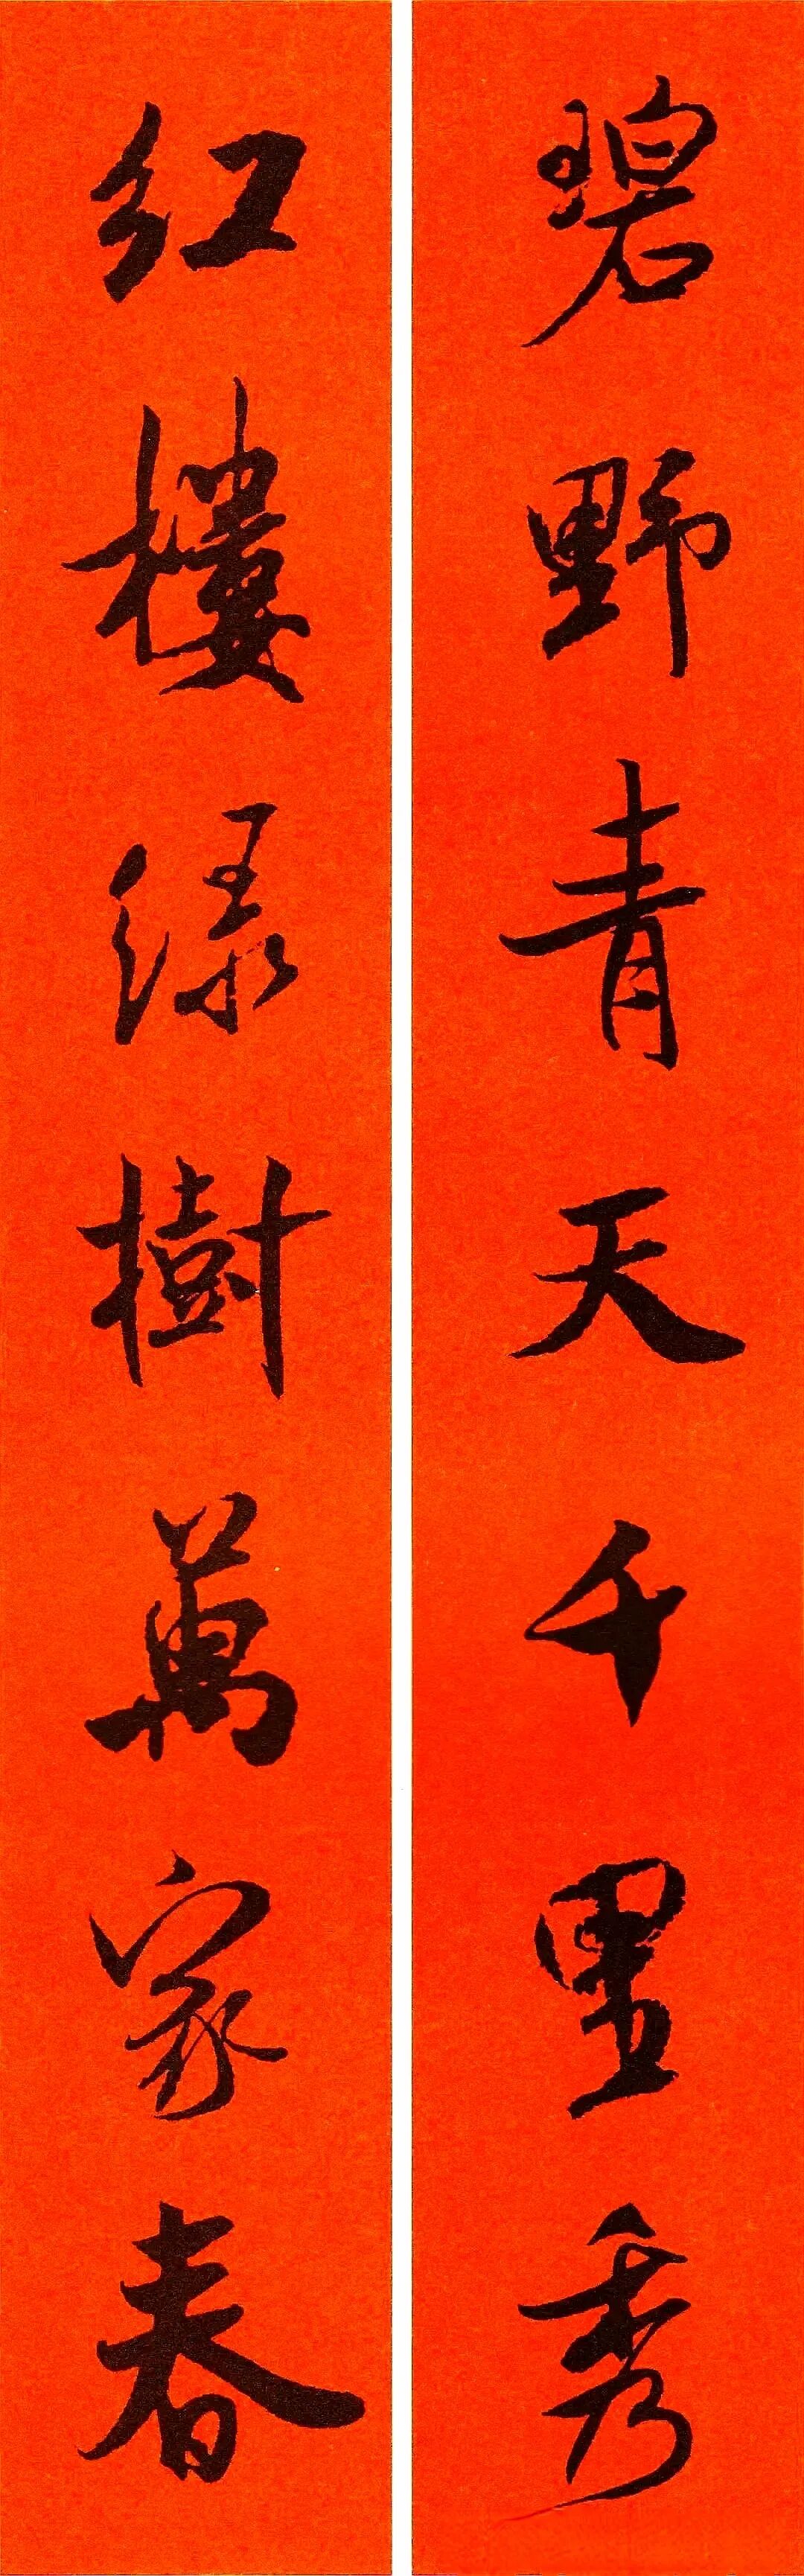 碧野青天千里秀
红樓绿樹萬家春